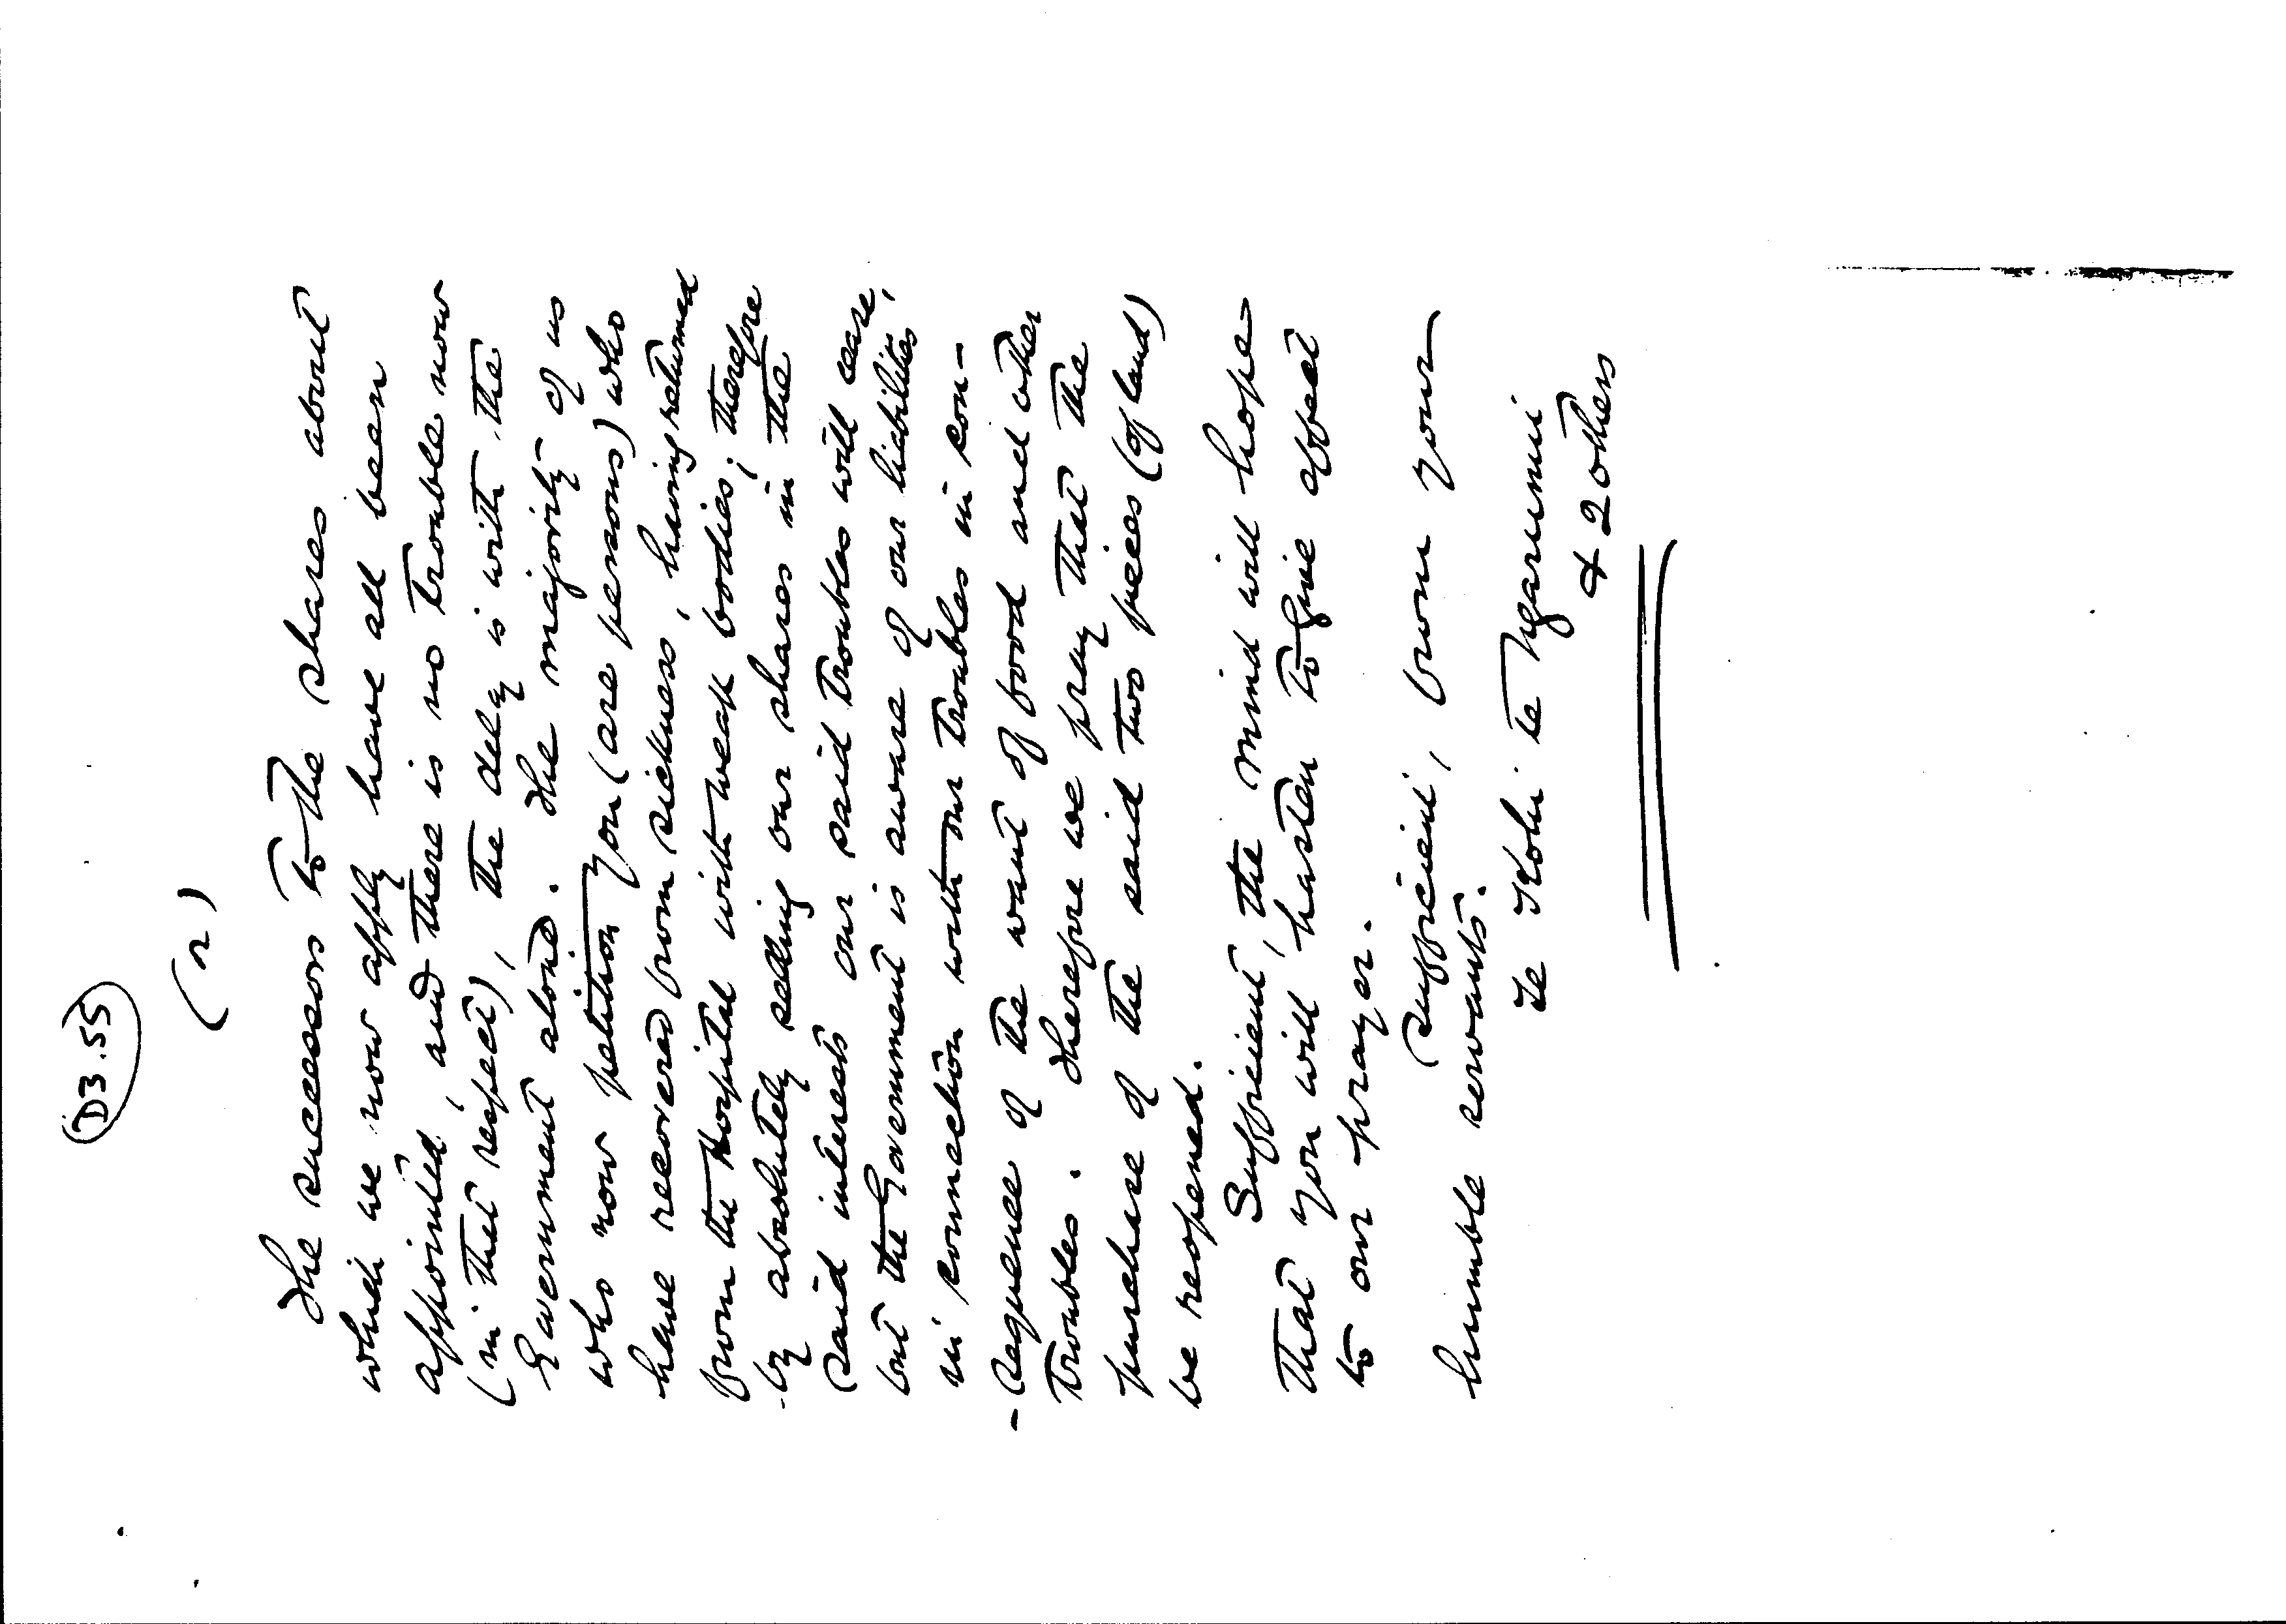 D3.55
(2)
The successors to the shares about
which we now apply have all been
appointed, and there is no trouble now
(in that respect), the delay is with the
Government alone. The majority of us
who now petition you (are persons) who
have recovered from sickness, having returned
from the Hospital with weak bodies; therefore
by absolutely selling our shares in the
said interests our said troubles will cease,
but the Government is aware of our liabilities,
in connection with our troubles in con-
-sequence of the want of food and other
troubles. Therefore we pray that the
purchase of the said two pieces (of land)
be reopened.
Sufficient, the mind will hope
that you will hasten to give effect
to our prayer.
Sufficient, from your
humble servants.
Te Kohi te Ngarumui
& 2 others